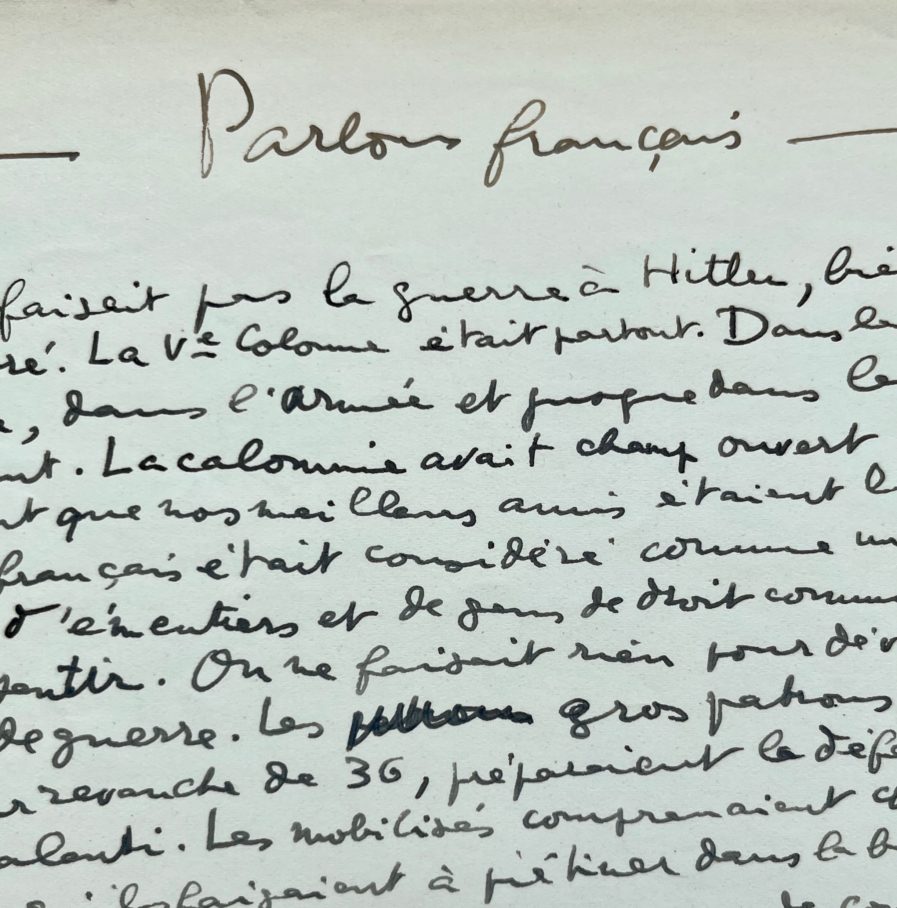 Parlons français
faisait pas la guerre à Hitler, bié
ré. La Ve Colonne était partout. Dans le
, dans l'armée et jusque dans le
nt. La calomnie avait champ ouvert
nt que nos meilleurs amis étaient l
français était considéré comme un
d'émeutiers et de gens de droit commun
sentir. On ne faisait rien pour dév
de guerre. Les gros patrons
r revanche de 36, préparaient la défa
alenti. Les mobilisés comprenaient q
qu'ils faisaient à piétiner dans la b
de co